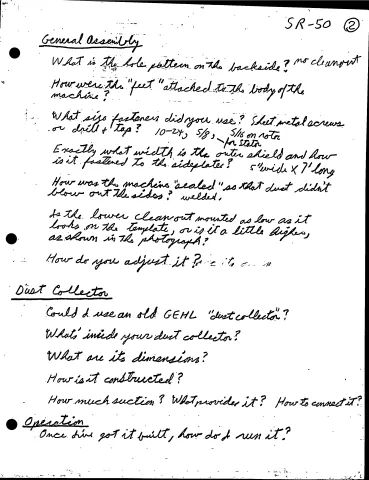 SR-50 (2)
General Assembly
What is the hole pattern on the backside? no cleanout
How were the "feet" attached to the body of the
machine?
What size fasteners did you use? Sheet metal screws
or drill & tap? 10-24, 5/8, 5/16 on rotor
for stator
Exactly what width is the outer shield and how
is it fastened to the sideplates? 5" wide X 7' long
How was the machine "sealed" so that dust didn't
blow out the sides? welded.
Is the lower cleanout mounted as low as it
looks on the template, or is it a little higher,
as shown in the photograph?
How do you adjust it?
Dust Collector
Could I use an old GEHL "dust collector"?
What's inside your dust collector?
What are its dimensions?
How is it constructed?
How much suction? What provides it? How to connect it?
Operation
Once I've got it built, how do I run it?